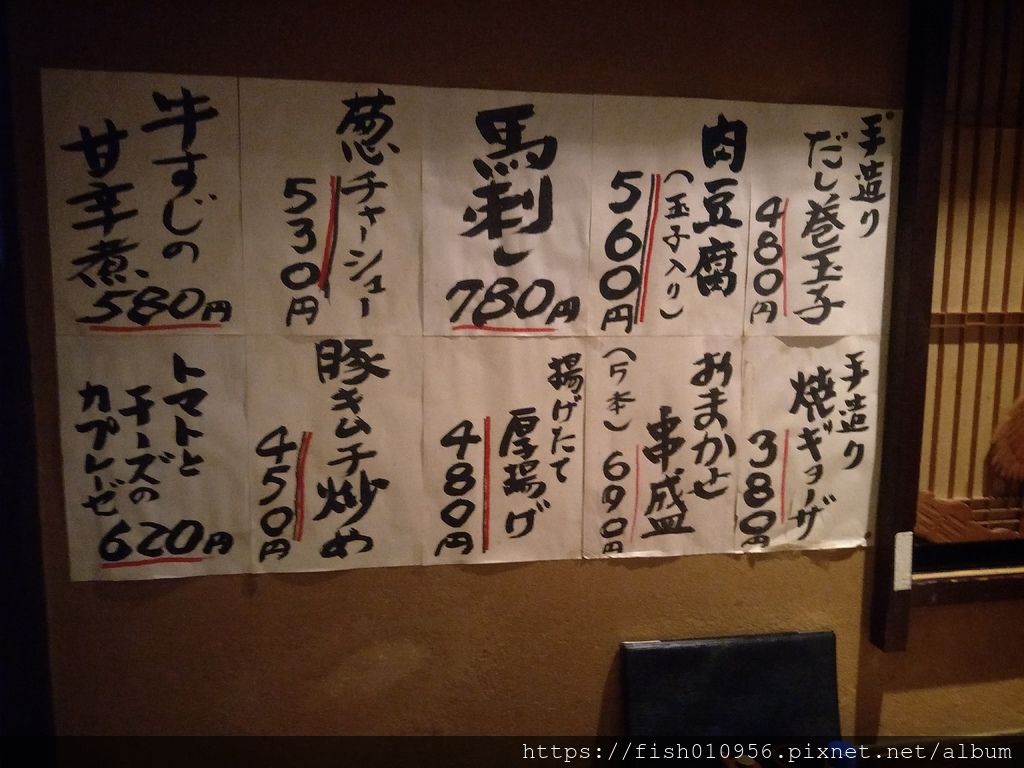 手造り
だし巻玉子
480円
肉豆腐
(玉子入り)
560円
馬刺し
780円
葱チャーシュー
530円
牛すじの
甘辛煮
580円
手造り
焼ギョーザ
380円
おまかせ
串盛
(5本)
690円
揚げたて
厚揚げ
480円
豚キムチ炒め
450円
トマトと
チーズの
カプレーゼ
620円
https://fish010956.pixnet.net/album